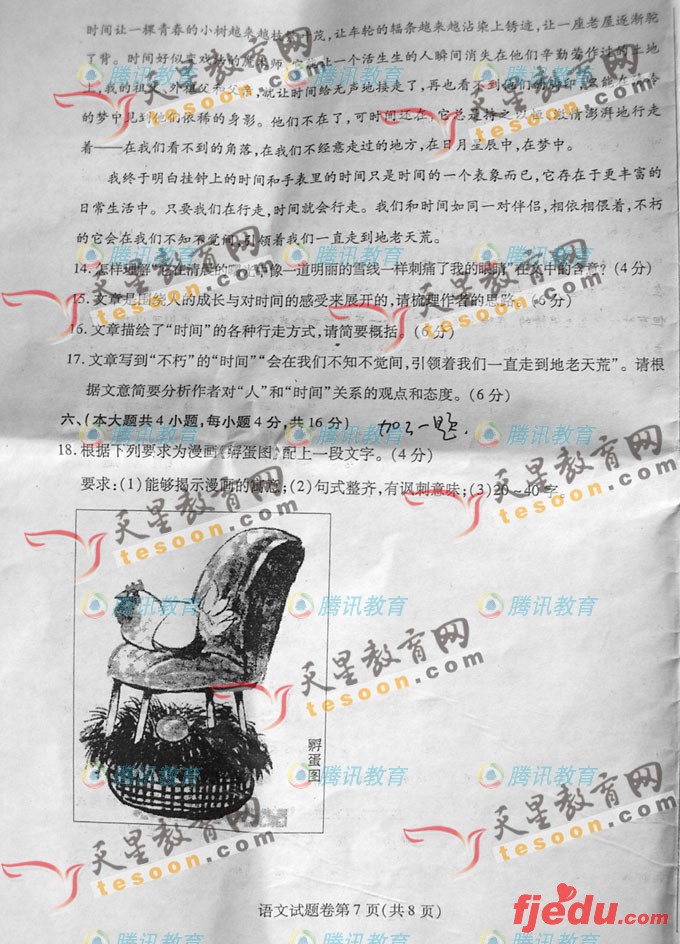 时间让一棵青春的小树越来越枝 茂,让车轮的辐条越来越沾染上锈迹,让一座老屋逐渐驼
了背。时间好似 戏 的 师 一个活生生的人瞬间消失在他们辛勤劳作过的土地
上,我的祖父、外祖父和父亲,就让时间给无声地接走了,再也看不到他们的 ,只能在
的梦中见到他们依稀的身影。他们不在了,可时间还在,它总是持之以恒、激情澎湃地行走
着——在我们看不到的角落,在我们不经意走过的地方,在日月星辰中,在梦中。
我终于明白挂钟上的时间和手表里的时间只是时间的一个表象而已,它存在于更丰富的
日常生活中。只要我们在行走,时间就会行走。我们和时间如同一对伴侣,相依相偎着,不朽
的它会在我们不知不觉间,引领着我们一直走到地老天荒。
14. 怎样理解“它在清晨的 像一道明丽的雪线一样刺痛了我的眼睛”在文中的含意?(4分)
15. 文章是围绕人的成长与对时间的感受来展开的,请梳理作者的思路。(6分)
16. 文章描绘了“时间”的各种行走方式,请简要概括。(6分)
17. 文章写到“不朽”的“时间”“会在我们不知不觉间,引领着我们一直走到地老天荒”。请根
据文意简要分析作者对“人”和“时间”关系的观点和态度。(6分)
六、(本大题共4小题,每小题4分,共16分) 加了一题.
18. 根据下列要求为漫画《孵蛋图》配上一段文字。(4分)
要求:(1)能够揭示漫画的寓意;(2)句式整齐,有讽刺意味;(3)20~40字。
孵蛋图
语文试题卷第7页(共8页)
腾讯教育
天星教育网
tesoon.com
fjedu.com